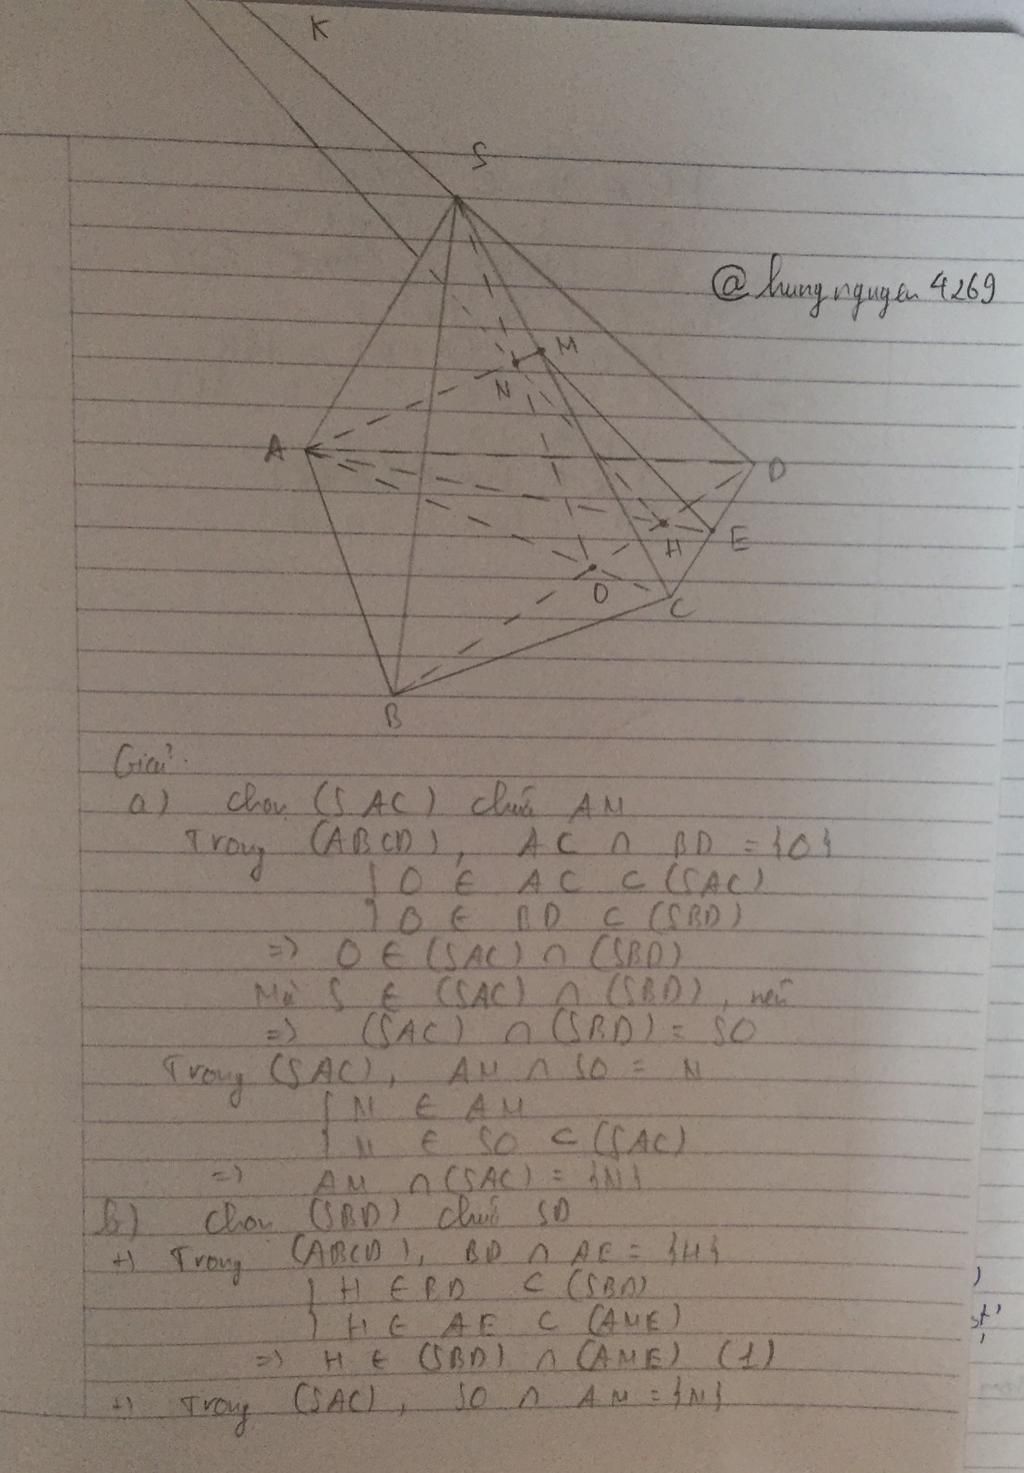 K
S
@hungnguyen4269
M
N
A
D
H
E
O
C
B
Giải:
a) Chọn (SAC) chứa AM
Trong (ABCD), AC ∩ BD = {O}
{ O ∈ AC ⊂ (SAC)
{ O ∈ BD ⊂ (SBD)
=> O ∈ (SAC) ∩ (SBD)
Mà S ∈ (SAC) ∩ (SBD), nên
=> (SAC) ∩ (SBD) = SO
Trong (SAC), AM ∩ SO = N
{ N ∈ AM
{ N ∈ SO ⊂ (SAC)
=> AM ∩ (SAC) = {N}
b) Chọn (SBD) chứa SD
+) Trong (ABCD), BD ∩ AE = {H}
{ H ∈ BD ⊂ (SBD)
{ H ∈ AE ⊂ (AME)
=> H ∈ (SBD) ∩ (AME) (1)
+) Trong (SAC), SO ∩ AM = {N}